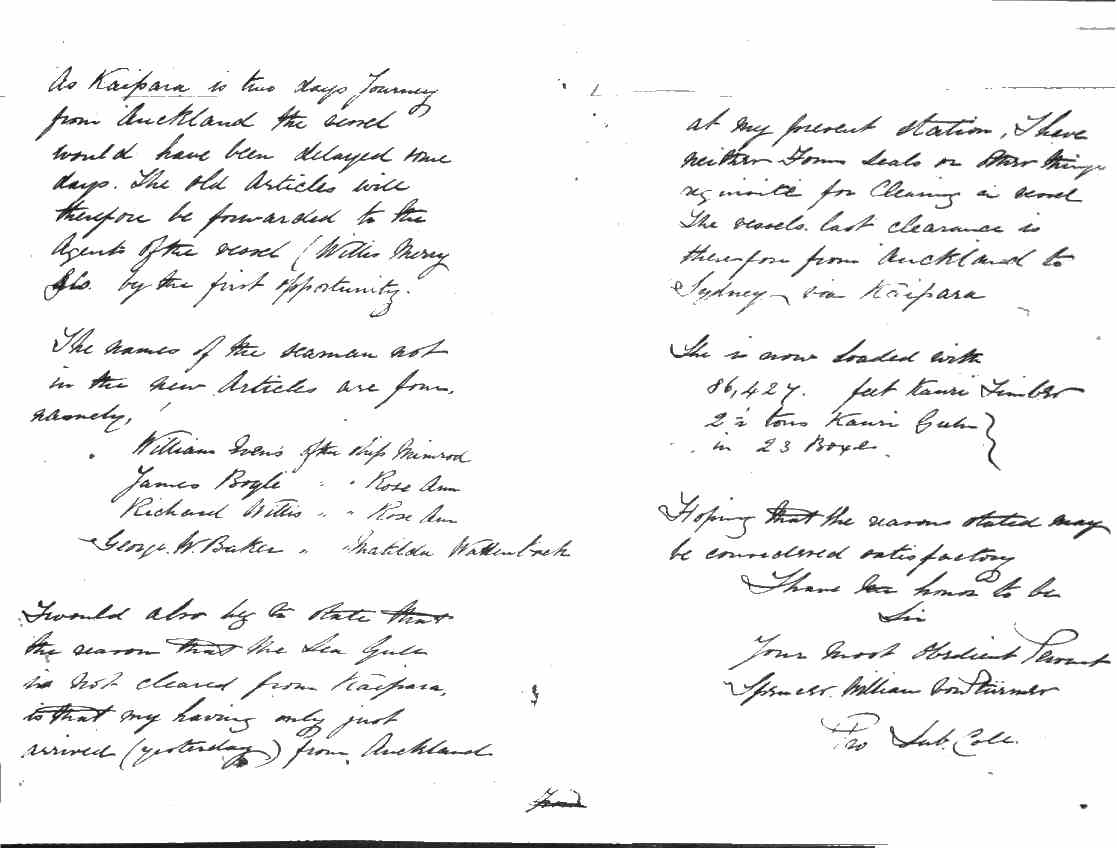 As Kaipara is two days Journey
from Auckland the vessel
would have been delayed some
days. The old Articles will
therefore be forwarded to the
Agents of the vessel (Willis Merry
&Co. by the first opportunity.
The names of the seaman not
in the new Articles are four,
namely,
William Evens of the ship Nimrod
James Bogle " " Rose Ann
Richard Willis " " Rose Ann
George. W. Baker " Matilda Wattenbach
I would also beg to state that
the reason that the Sea Gull
is not cleared from Kaipara,
is that my having only just
arrived (yesterday) from Auckland
at my present station, I have
neither Forms Seals or other things
requisite for Clearing a vessel
The vessels last clearance is
therefore from Auckland to
Sydney via Kaipara
She is now loaded with
86,427. feet Kauri Timber
2½ tons Kauri Gum
in 23 Boxes
Hoping that the reasons stated may
be considered satisfactory
I have the honor to be
Sir
Your Most Obedient Servant
Spencer. William von Stürmer
Pro Sub. Coll.